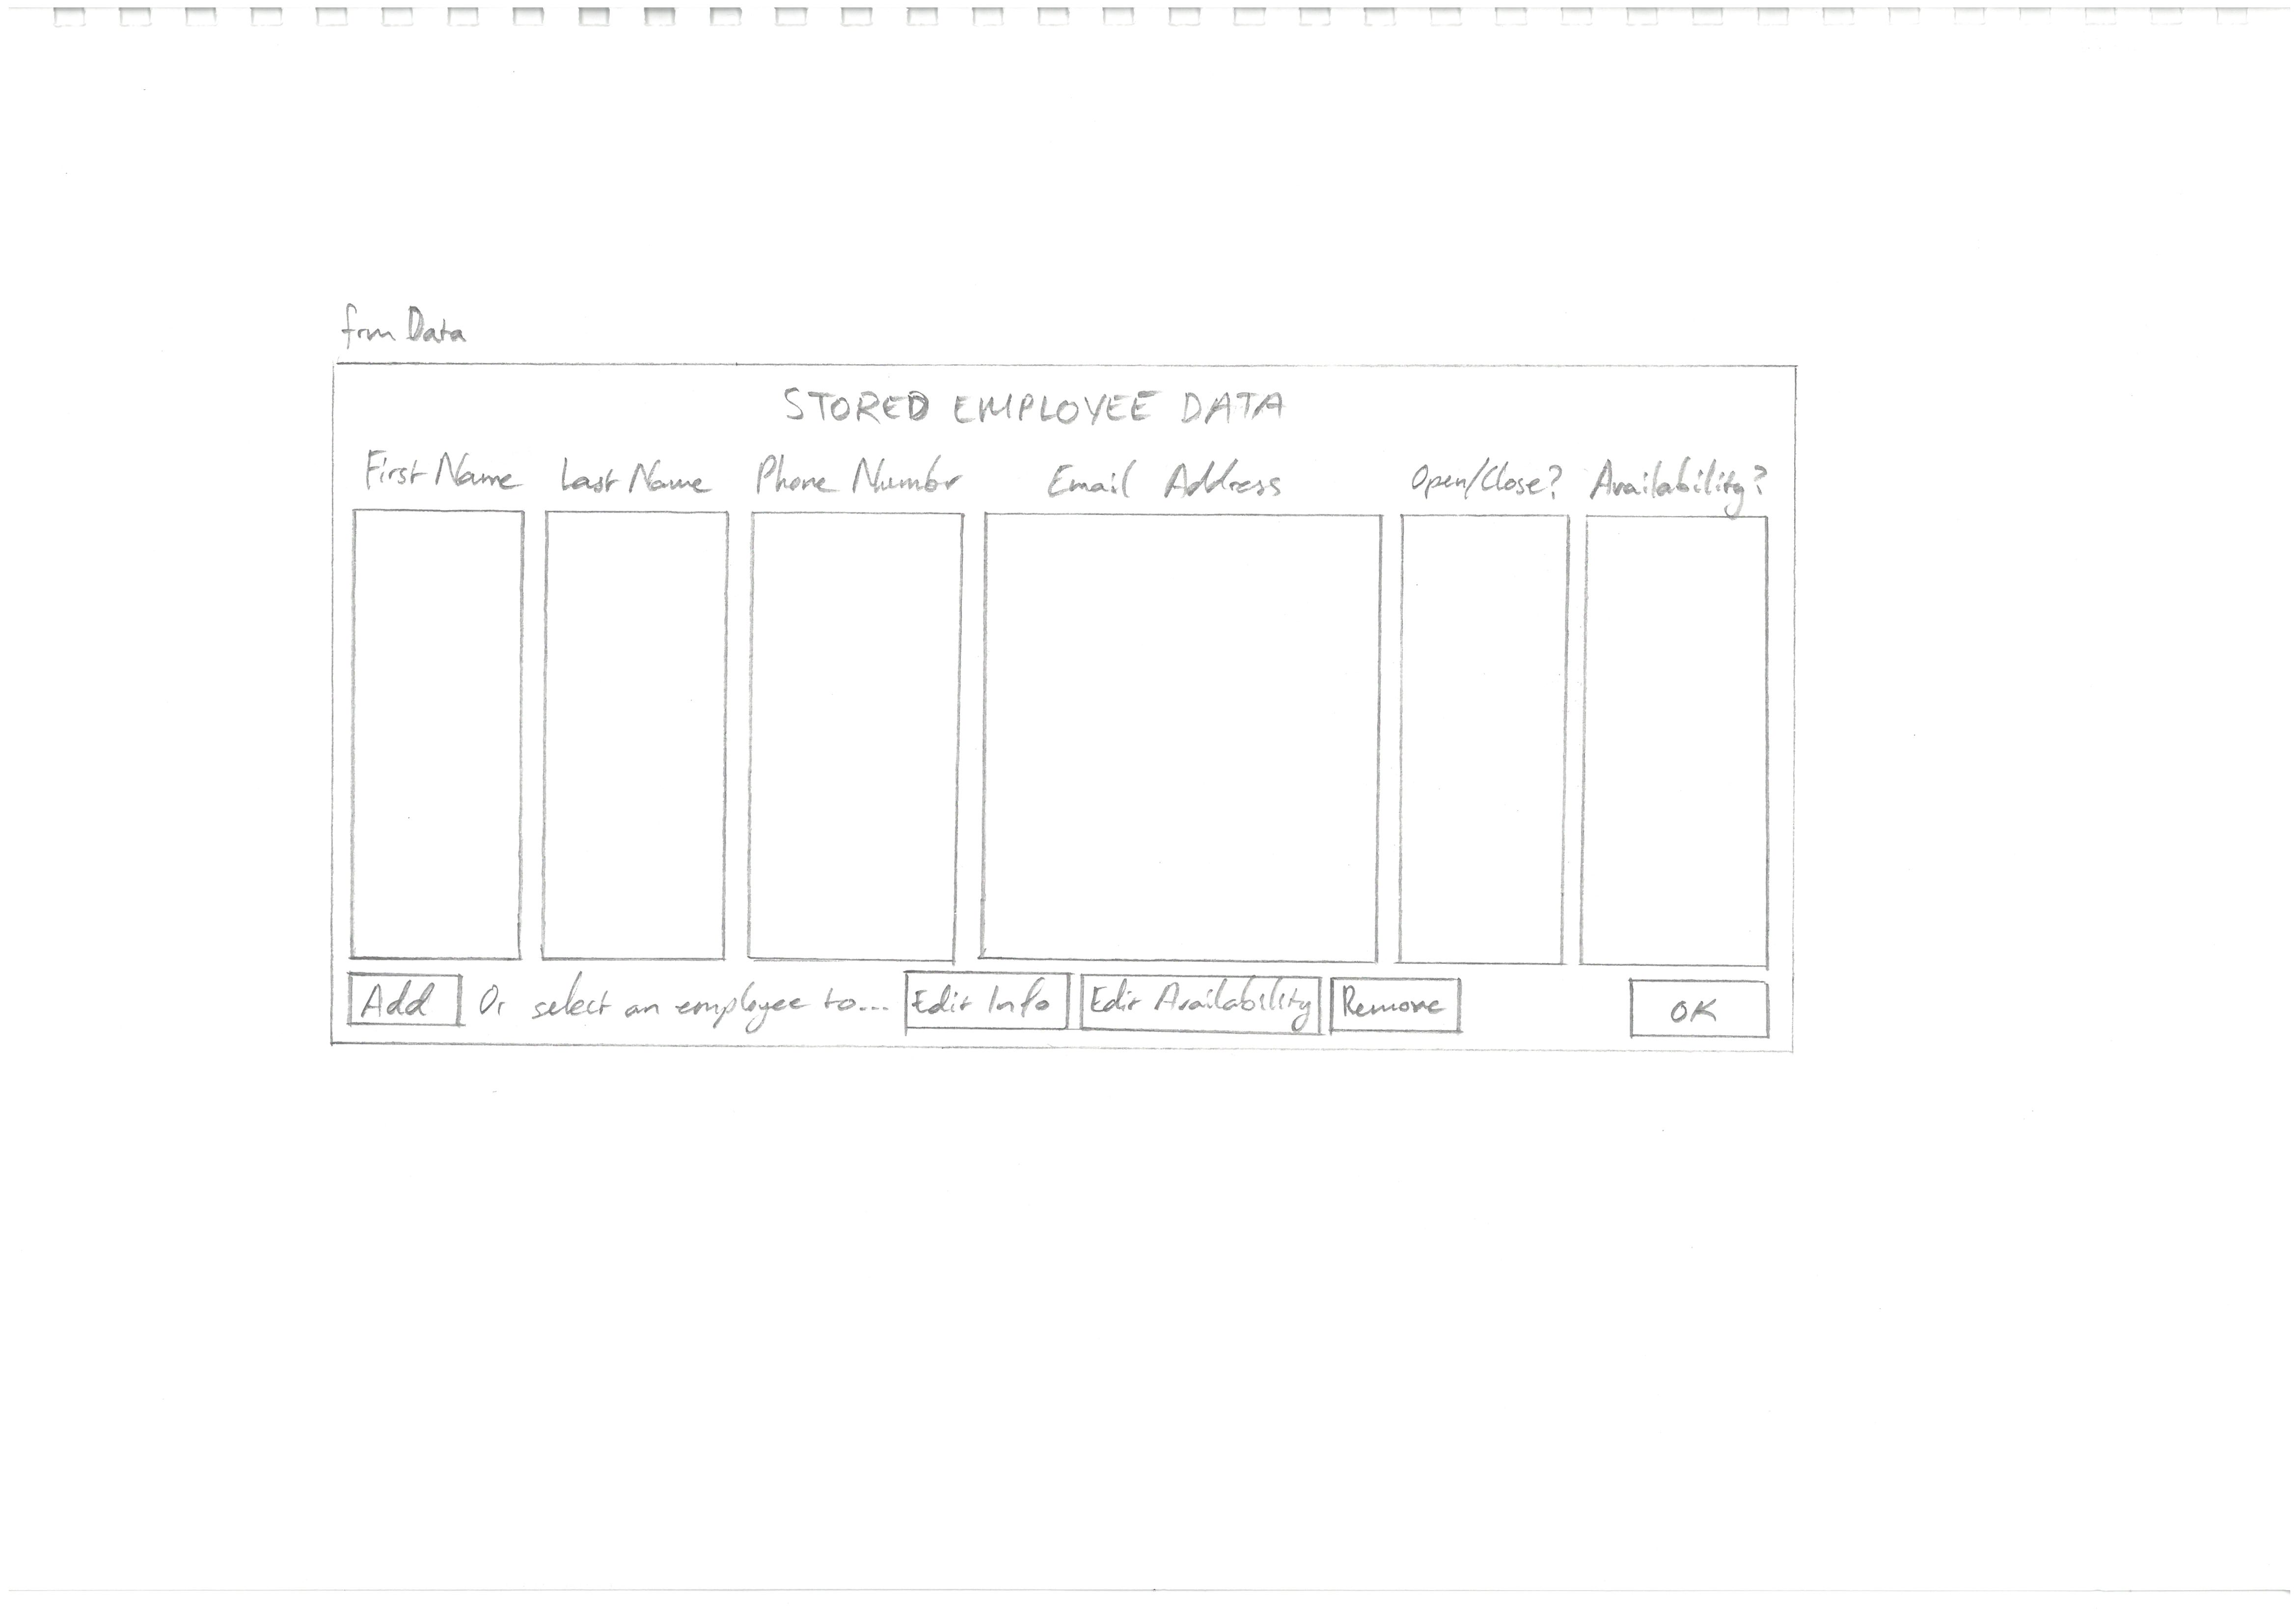 frmData
STORED EMPLOYEE DATA
First Name Last Name Phone Number Email Address Open/Close? Availability?
Add Or select an employee to... Edit Info Edit Availability Remove OK